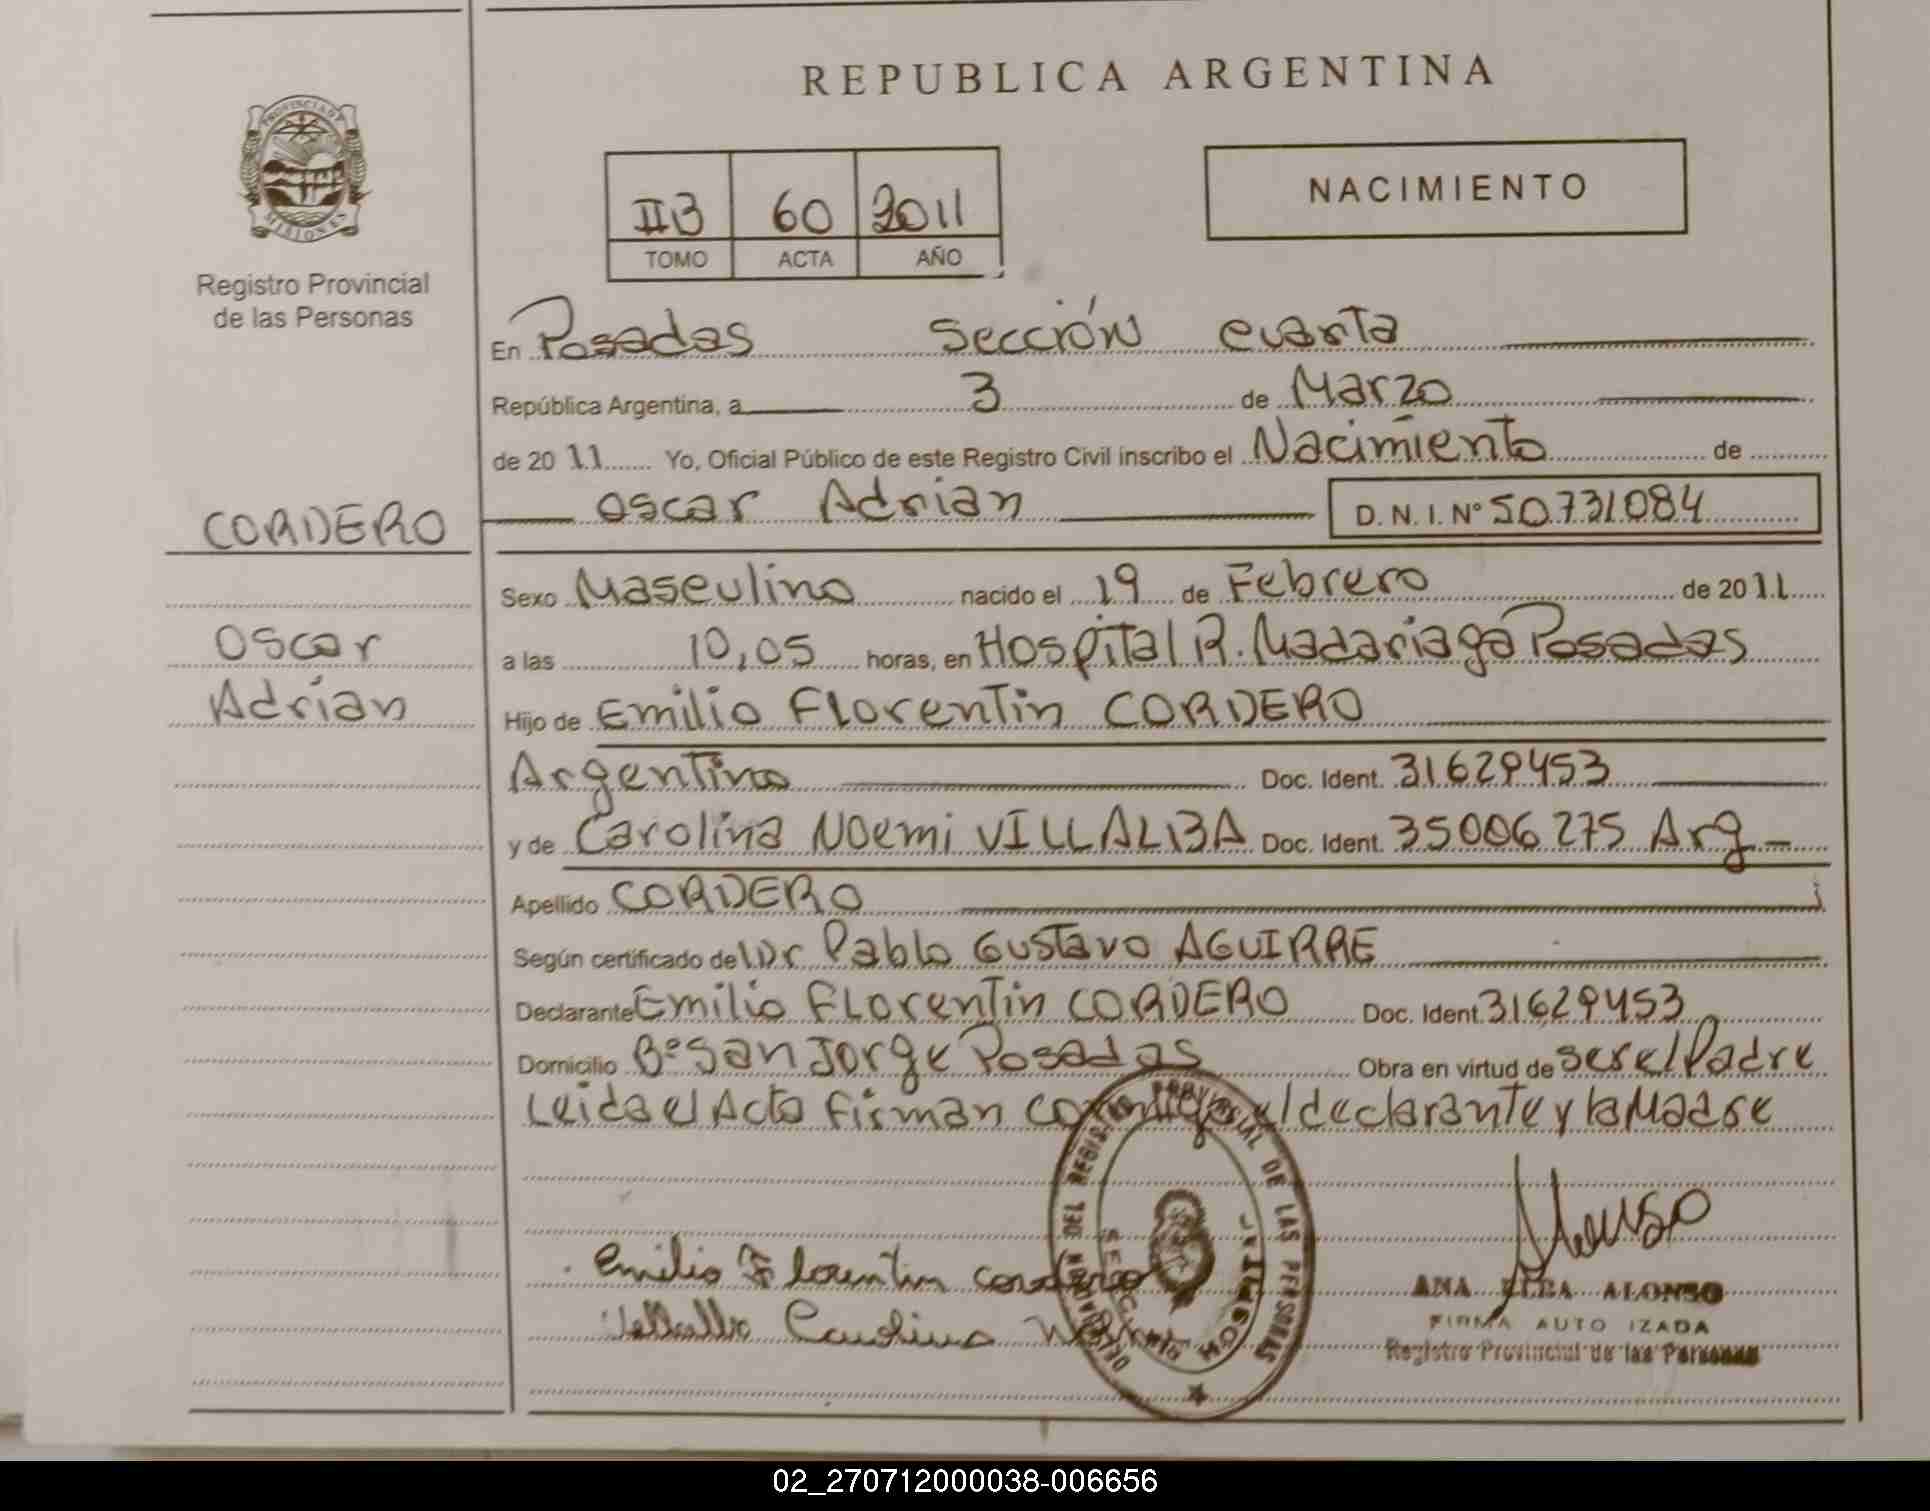 REPUBLICA ARGENTINA
PROVINCIA DE
MISIONES
Registro Provincial
de las Personas
NACIMIENTO
IIB 60 2011
TOMO ACTA AÑO
En Posadas Sección cuarta
República Argentina, a 3 de Marzo
de 20 11 Yo, Oficial Público de este Registro Civil inscribo el Nacimiento de
CORDERO
Oscar Adrian D. N. I. Nº 50.731.084
Sexo Masculino nacido el 19 de Febrero de 20 11
Oscar
a las 10,05 horas, en Hospital R. Madariaga Posadas
Adrian
Hijo de Emilio Florentin CORDERO
Argentino Doc. Ident. 31629453
y de Carolina Noemi VILLALBA Doc. Ident. 35006275 Arg
Apellido CORDERO
Según certificado del Dr Pablo Gustavo AGUIRRE
Declarante Emilio Florentin CORDERO Doc. Ident. 31629453
Domicilio Bº San Jorge Posadas Obra en virtud de ser el Padre
Leida el Acta firman conmigo el declarante y la Madre
DEL REGISTRO PROVINCIAL DE LAS PERSONAS
Emilio Florentin Cordero
Alonso
ANA ELBA ALONSO
FIRMA AUTO IZADA
Registro Provincial de las Personas
02_270712000038-006656